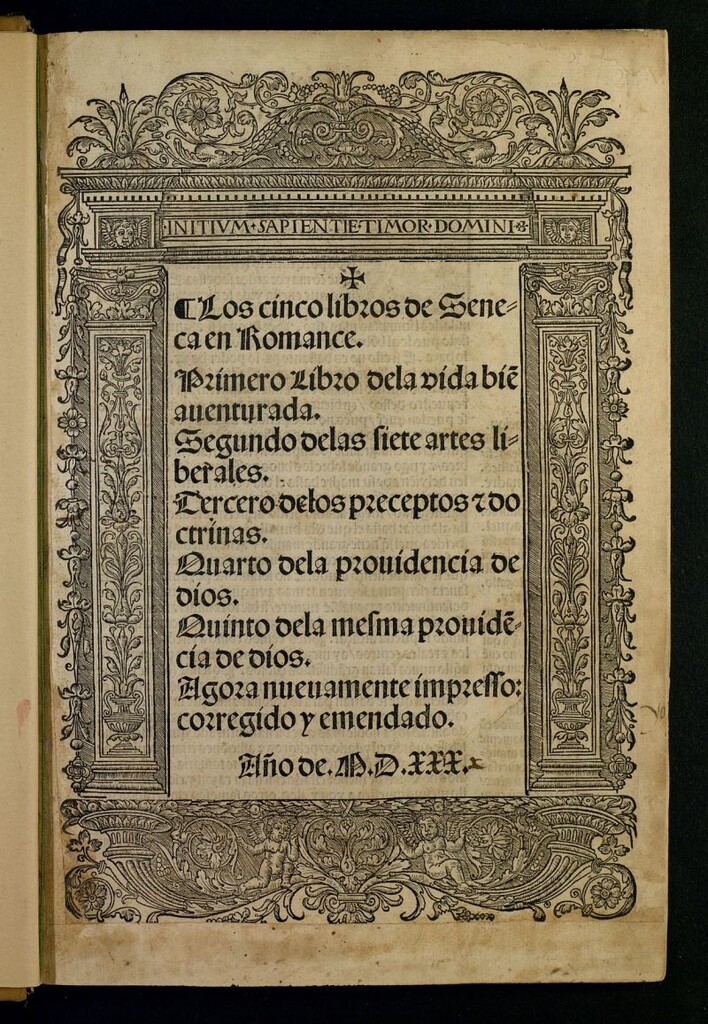 ·INITIVM·SAPIENTIE·TIMOR·DOMINI·
✠
¶Los cinco libros de Sene⸗
ca en Romance.
Primero Libro dela vida biē
auenturada.
Segundo delas ſiete artes li⸗
berales.
Tercero delos preceptos ⁊ do
ctrinas.
Quarto dela prouidencia de
dios.
Quinto dela meſma prouidē⸗
cia de dios.
Agora nueuamente impreſſo:
corregido y emendado.
Año de .M.D.XXX.